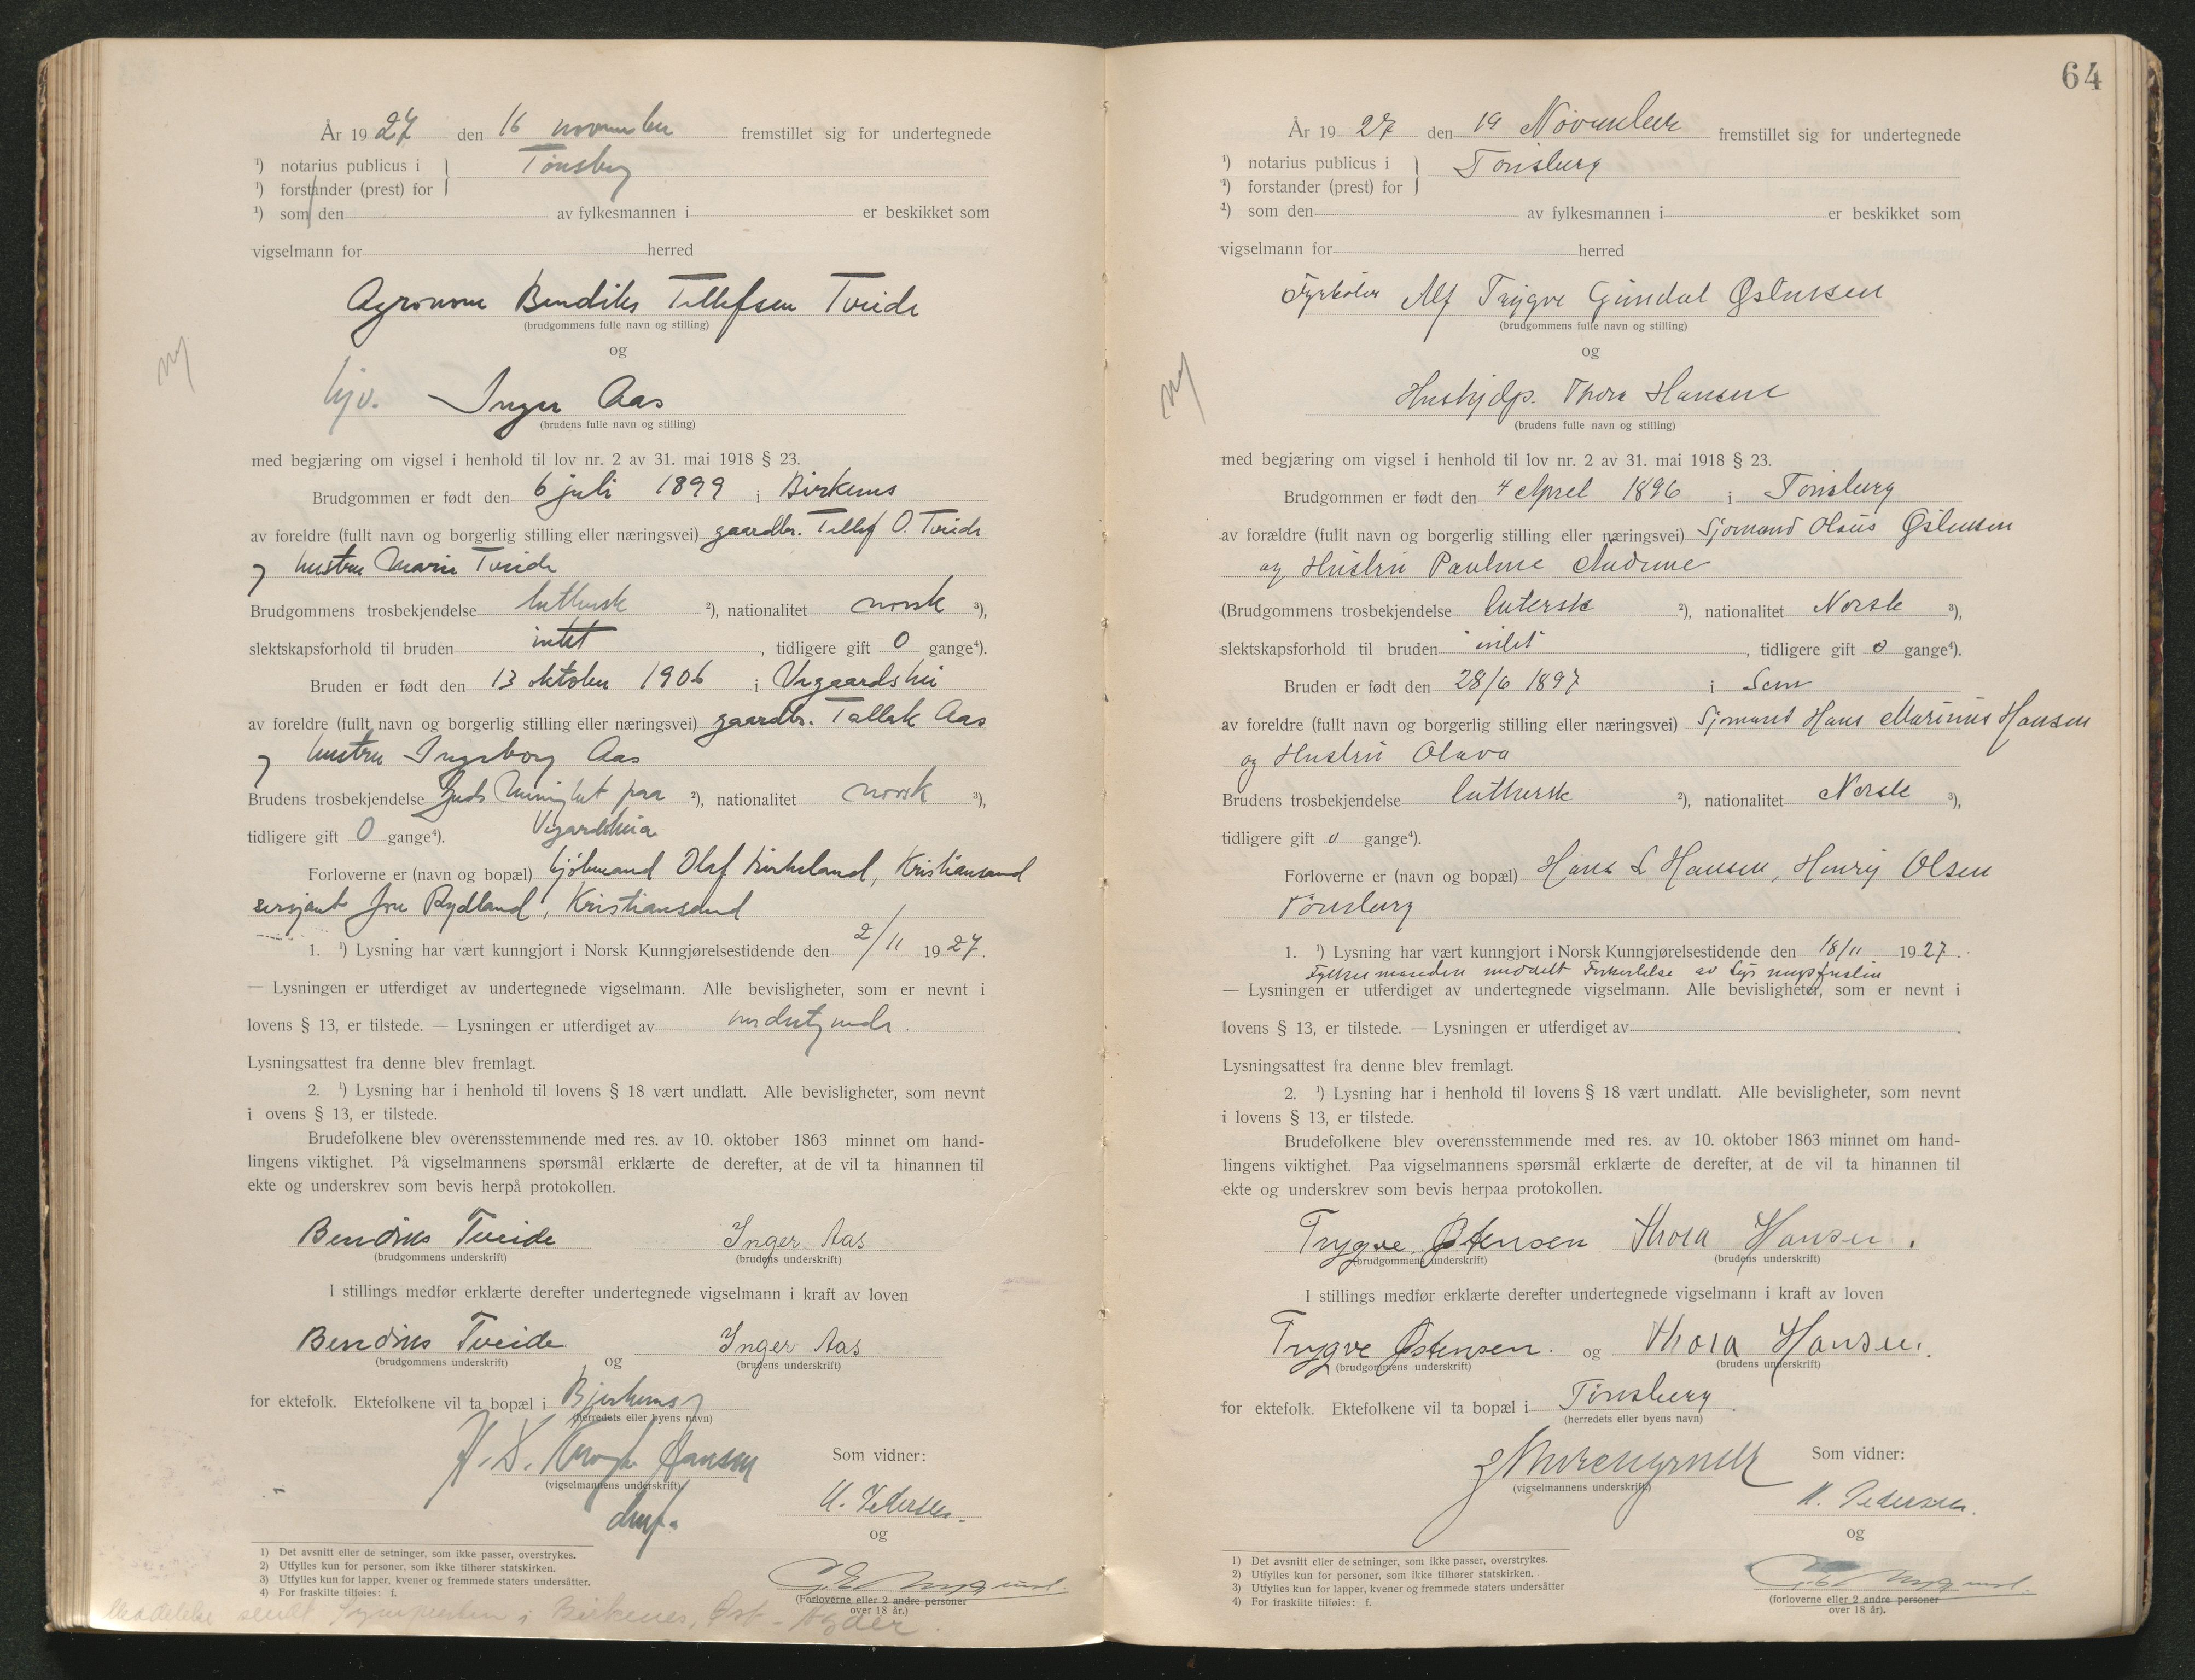 År 19 27 den 16 november fremstillet sig for undertegnede
¹) notarius publicus i } Tønsberg
¹) forstander (prest) for
¹) som den av fylkesmannen i er beskikket som
vigselmann for herred
Agronom Bendiks Tellefsen Tveide
(brudgommens fulle navn og stilling)
og
ny
Inger Aas
(brudens fulle navn og stilling)
med begjæring om vigsel i henhold til lov nr. 2 av 31. mai 1918 § 23.
Brudgommen er født den 6 juli 1899 i Birkenes
av foreldre (fullt navn og borgerlig stilling eller næringsvei) gaardbr. Tellef O. Tveide
og hustru Marie Tveide
Brudgommens trosbekjendelse luthersk ²), nationalitet norsk ³),
slektskapsforhold til bruden intet , tidligere gift 0 gange⁴).
Bruden er født den 13 oktober 1906 i Vegaardshei
av foreldre (fullt navn og borgerlig stilling eller næringsvei) gaardbr. Tallak Aas
og hustru Ingeborg Aas
Brudens trosbekjendelse Guds Menighet paa ²), nationalitet norsk ³),
tidligere gift 0 gange⁴). Vegardsheia
Forloverne er (navn og bopæl) Olaf Birkeland, Kristiansand
sersjant Rydland, Kristiansand
1. ¹) Lysning har vært kunngjort i Norsk Kunngjørelsestidende den 2/11 1927.
— Lysningen er utferdiget av undertegnede vigselmann. Alle bevisligheter, som er nevnt i
lovens § 13, er tilstede. — Lysningen er utferdiget av undertegnede.
Lysningsattest fra denne blev fremlagt.
2. ¹) Lysning har i henhold til lovens § 18 vært undlatt. Alle bevisligheter, som nevnt
i ovens § 13, er tilstede.
Brudefolkene blev overensstemmende med res. av 10. oktober 1863 minnet om hand-
lingens viktighet. På vigselmannens spørsmål erklærte de derefter, at de vil ta hinannen til
ekte og underskrev som bevis herpå protokollen.
Bendiks Tveide Inger Aas
(brudgommens underskrift) (brudens underskrift)
I stillings medfør erklærte derefter undertegnede vigselmann i kraft av loven
Bendiks Tveide Inger Aas
(brudgommens underskrift) og (brudens underskrift)
for ektefolk. Ektefolkene vil ta bopæl i Bjerkenes
(herredets eller byens navn)
Krogh Hansen Som vidner:
(vigselmannens underskrift)
M. Pedersen.
og
1) Det avsnitt eller de setninger, som ikke passer, overstrykes.
2) Utfylles kun for personer, som ikke tilhører statskirken.
3) Utfylles kun for lapper, kvener og fremmede staters undersåtter.
4) For fraskilte tilføies: f.
(Forloverne eller 2 andre personer
over 18 år.)
Meddelelse sendt Sogneprsten i Birkenes, Øst-Agder.
64
År 19 27 den 19 November fremstillet sig for undertegnede
¹) notarius publicus i } Tønsberg
¹) forstander (prest) for
¹) som den av fylkesmannen i er beskikket som
vigselmann for herred
Fyrbøter Alf Trygve Gundal Østensen
(brudgommens fulle navn og stilling)
og
ny
Hushjelp. Thora Hansen
(brudens fulle navn og stilling)
med begjæring om vigsel i henhold til lov nr. 2 av 31. mai 1918 § 23.
Brudgommen er født den 4 April 1896 i Tønsberg
av forældre (fullt navn og borgerlig stilling eller næringsvei) Sjømand Olaus Østensen
og Hustru Pauline Andrine
(Brudgommens trosbekjendelse lutersk ²), nationalitet Norsk ³),
slektskapsforhold til bruden intet , tidligere gift 0 gange⁴).
Bruden er født den 28/6 1897 i Sem
av foreldre (fullt navn og borgerlig stilling eller næringsvei) Sjømand Hans Marinius Hansen
og Hustru Olava
Brudens trosbekjendelse luthersk ²), nationalitet Norsk ³),
tidligere gift 0 gange⁴).
Forloverne er (navn og bopæl) Hans L Hansen, Henry Olsen
Tønsberg
1. ¹) Lysning har vært kunngjort i Norsk Kunngjørelsestidende den 18/11 1927.
Fylkesmanden meddelt Forkortelse av Lysningsfristen
— Lysningen er utferdiget av undertegnede vigselmann. Alle bevisligheter, som er nevnt i
lovens § 13, er tilstede. — Lysningen er utferdiget av
Lysningsattest fra denne blev fremlagt.
2. ¹) Lysning har i henhold til lovens § 18 vært undlatt. Alle bevisligheter, som nevnt
i lovens § 13, er tilstede.
Brudefolkene blev overensstemmende med res. av 10. oktober 1863 minnet om hand-
lingens viktighet. Paa vigselmannens spørsmål erklærte de derefter, at de vil ta hinannen til
ekte og underskrev som bevis herpaa protokollen.
Trygve Østensen Thora Hansen.
(brudgommens underskrift) (brudens underskrift)
I stillings medfør erklærte derefter undertegnede vigselmann i kraft av loven
Trygve Østensen. og Thora Hansen.
(brudgommens underskrift) (brudens underskrift)
for ektefolk. Ektefolkene vil ta bopæl i Tønsberg.
(herredets eller byens navn)
Som vidner:
(vigselmannens underskrift)
M. Pedersen.
og
1) Det avsnitt eller de setninger, som ikke passer, overstrykes.
2) Utfylles kun for personer, som ikke tilhører statskirken.
3) Utfylles kun for lapper, kvener og fremmede staters undersåtter
4) For fraskilte tilføies: f.
(forloverne eller 2 andre personer
over 18 år).